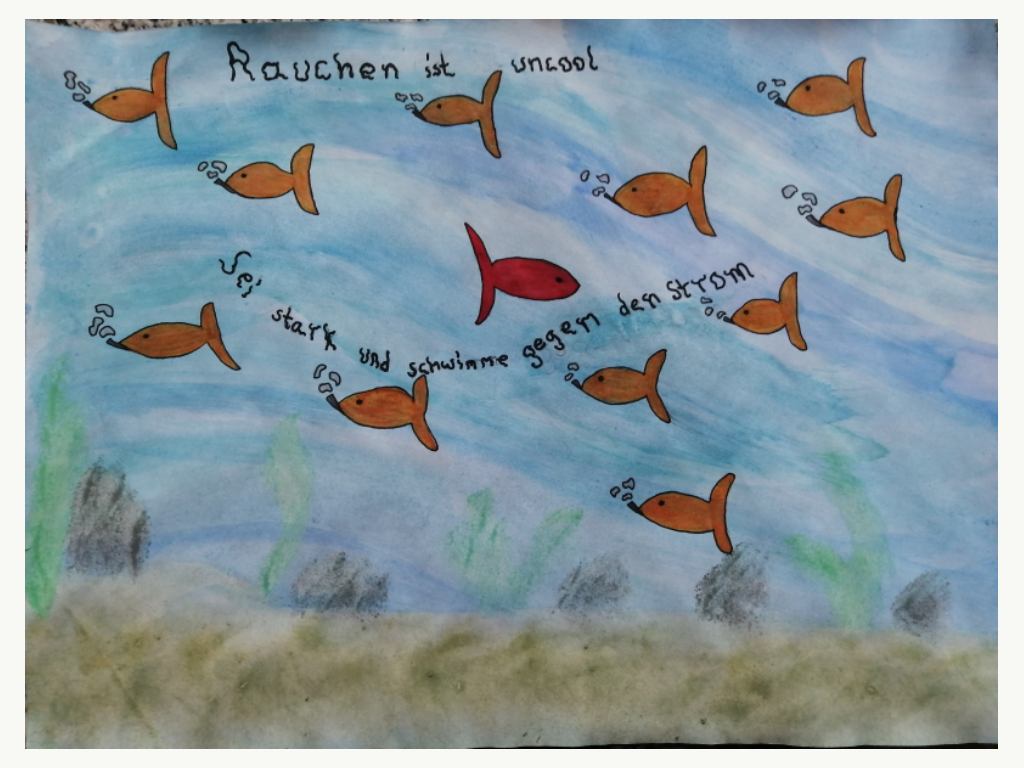 Rauchen ist uncool
Sei stark und schwimme gegen den Strom